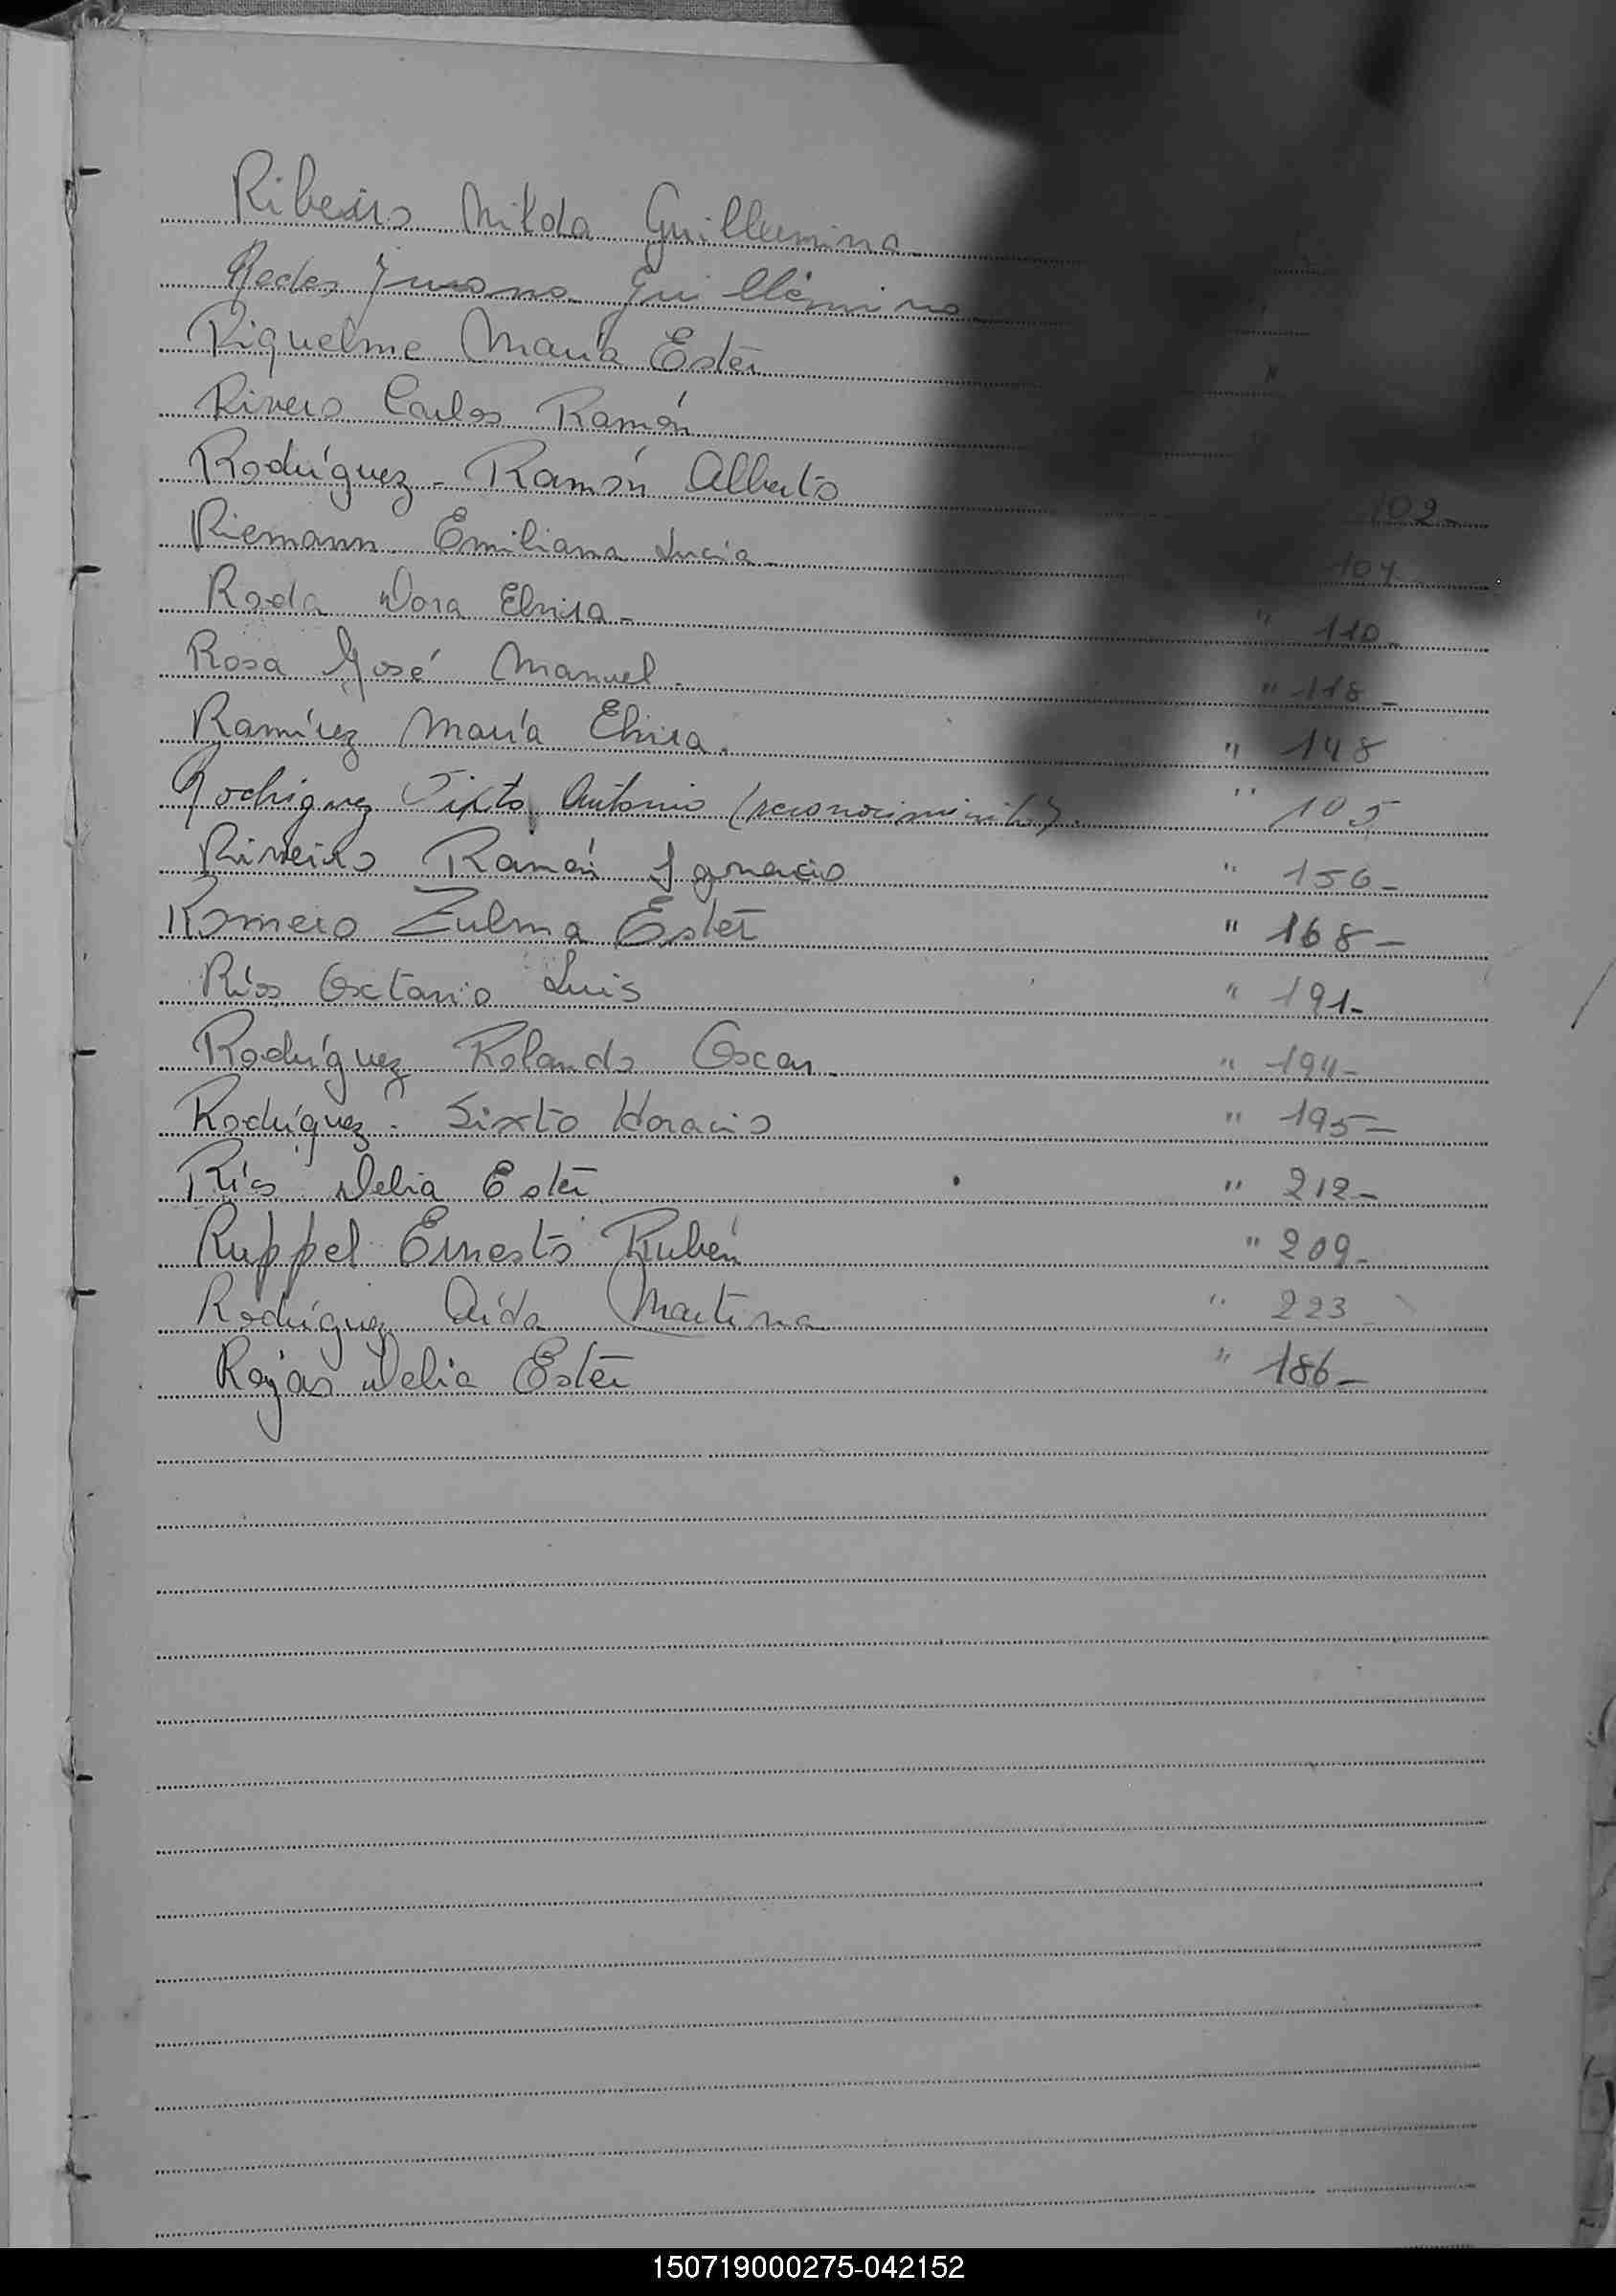 Ribeiro Nilda Guillermina
Redes Juana Guillermina
Riquelme María Ester "
Rivero Carlos Ramón
Rodríguez - Ramón Alberto 102-
Riemann Emiliana Lucía 107-
Roda Dora Elvira - " 110-
Rosa José Manuel. " 118-
Ramírez María Elvira. " 148
Rodríguez Sixto Antonio (reconocimiento). " 105
Riveiro Ramón Ignacio " 156-
Romero Zulma Ester " 168-
Ríos Octavio Luis " 191-
Rodríguez Rolando Oscar. " 194-
Rodríguez - Sixto Horacio " 195-
Ríos Delia Ester " 212-
Ruppel Ernesto Rubén " 209-
Rodríguez Aída Martina " 223
Rojas Delia Ester " 186-
150719000275-042152